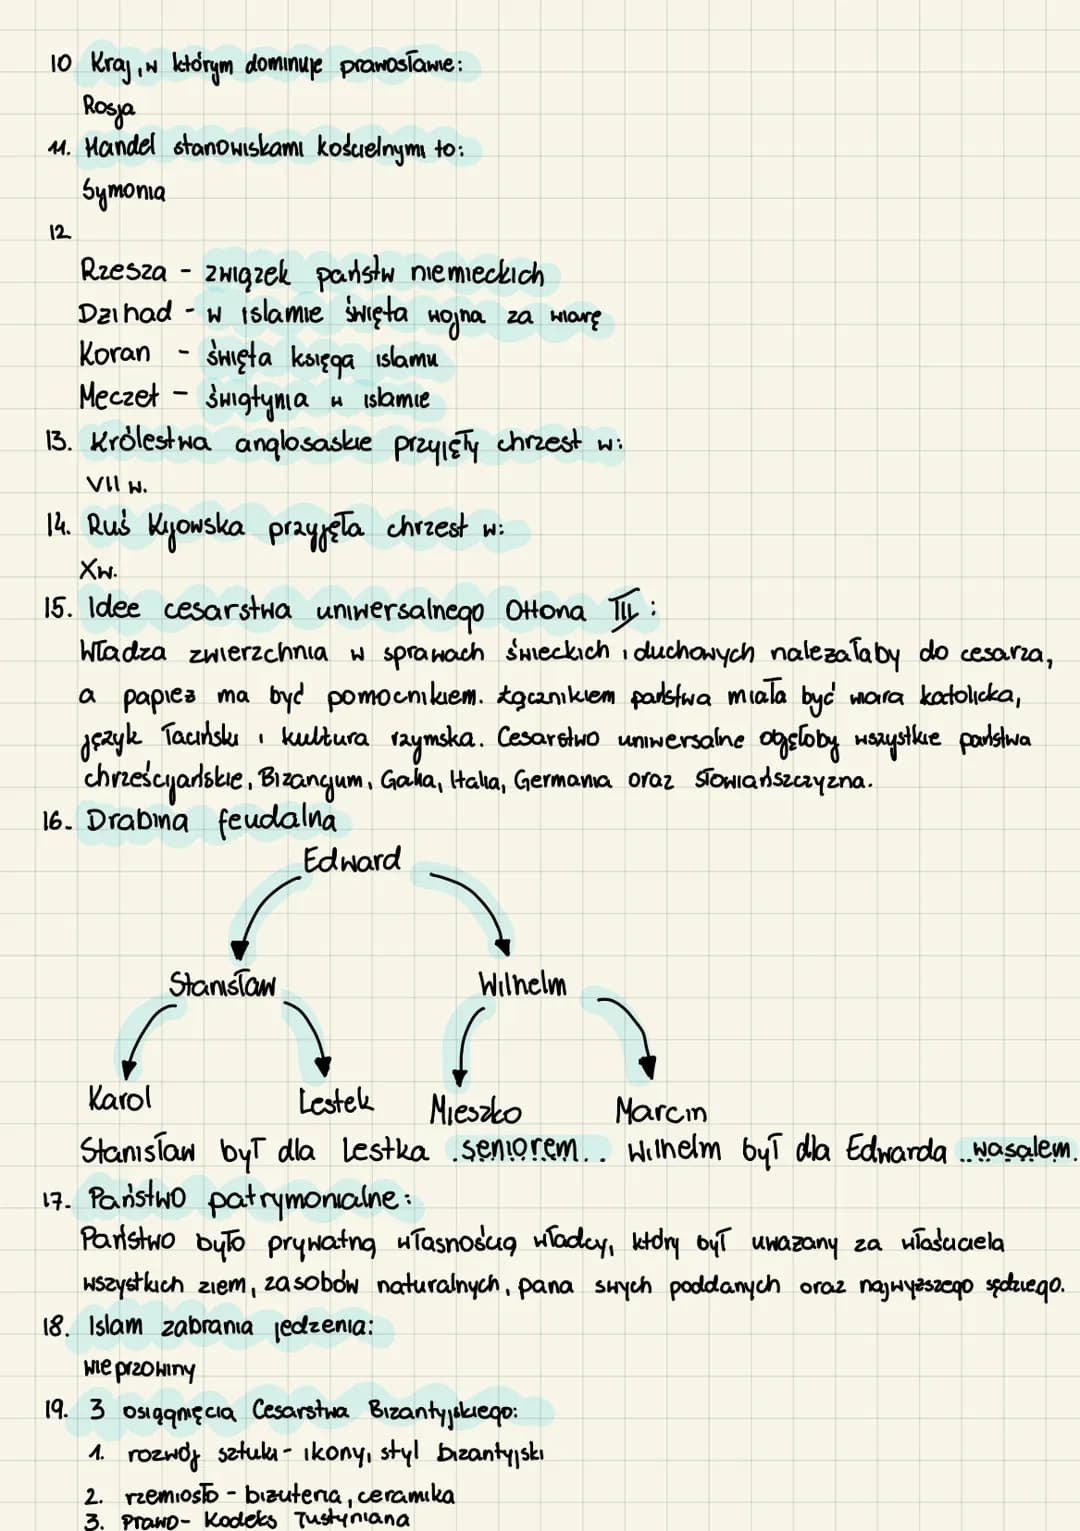 10 Kraj, w którym dominuje prawosławie:
Rosja
11. Handel stanowiskami kościelnymi to:
Symonia
12
Rzesza - związek państw niemieckich
Dzihad - w islamie święta wojna za wiarę
Koran - święta księga islamu
Meczet - świątynia w islamie
13. Królestwa anglosaskie przyjęły chrzest w:
VII w.
14. Ruś Kijowska przyjęła chrzest w:
X w.
15. Idee cesarstwa uniwersalnego Ottona III:
Władza zwierzchnia w sprawach świeckich i duchowych należałaby do cesarza,
a papież ma być pomocnikiem. Łącznikiem państwa miała być wiara katolicka,
język łaciński i kultura rzymska. Cesarstwo uniwersalne objęłoby wszystkie państwa
chrześcijańskie, Bizancjum, Galia, Italia, Germania oraz Słowiańszczyzna.
16. Drabina feudalna
Edward
Stanisław Wilhelm
Karol Lestek Mieszko Marcin
Stanisław był dla Lestka .seniorem.. Wilhelm był dla Edwarda ..wasalem.
17. Państwo patrymonialne:
Państwo było prywatną własnością władcy, który był uważany za właściciela
wszystkich ziem, zasobów naturalnych, pana swych poddanych oraz najwyższego sędziego.
18. Islam zabrania jedzenia:
wieprzowiny
19. 3 osiągnięcia Cesarstwa Bizantyjskiego:
1. rozwój sztuki - ikony, styl bizantyjski
2. rzemiosło - biżuteria, ceramika
3. Prawo - Kodeks Justyniana